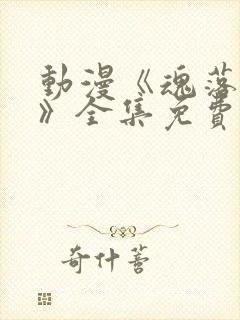 動漫《魂落
》全集免費
奇什菩